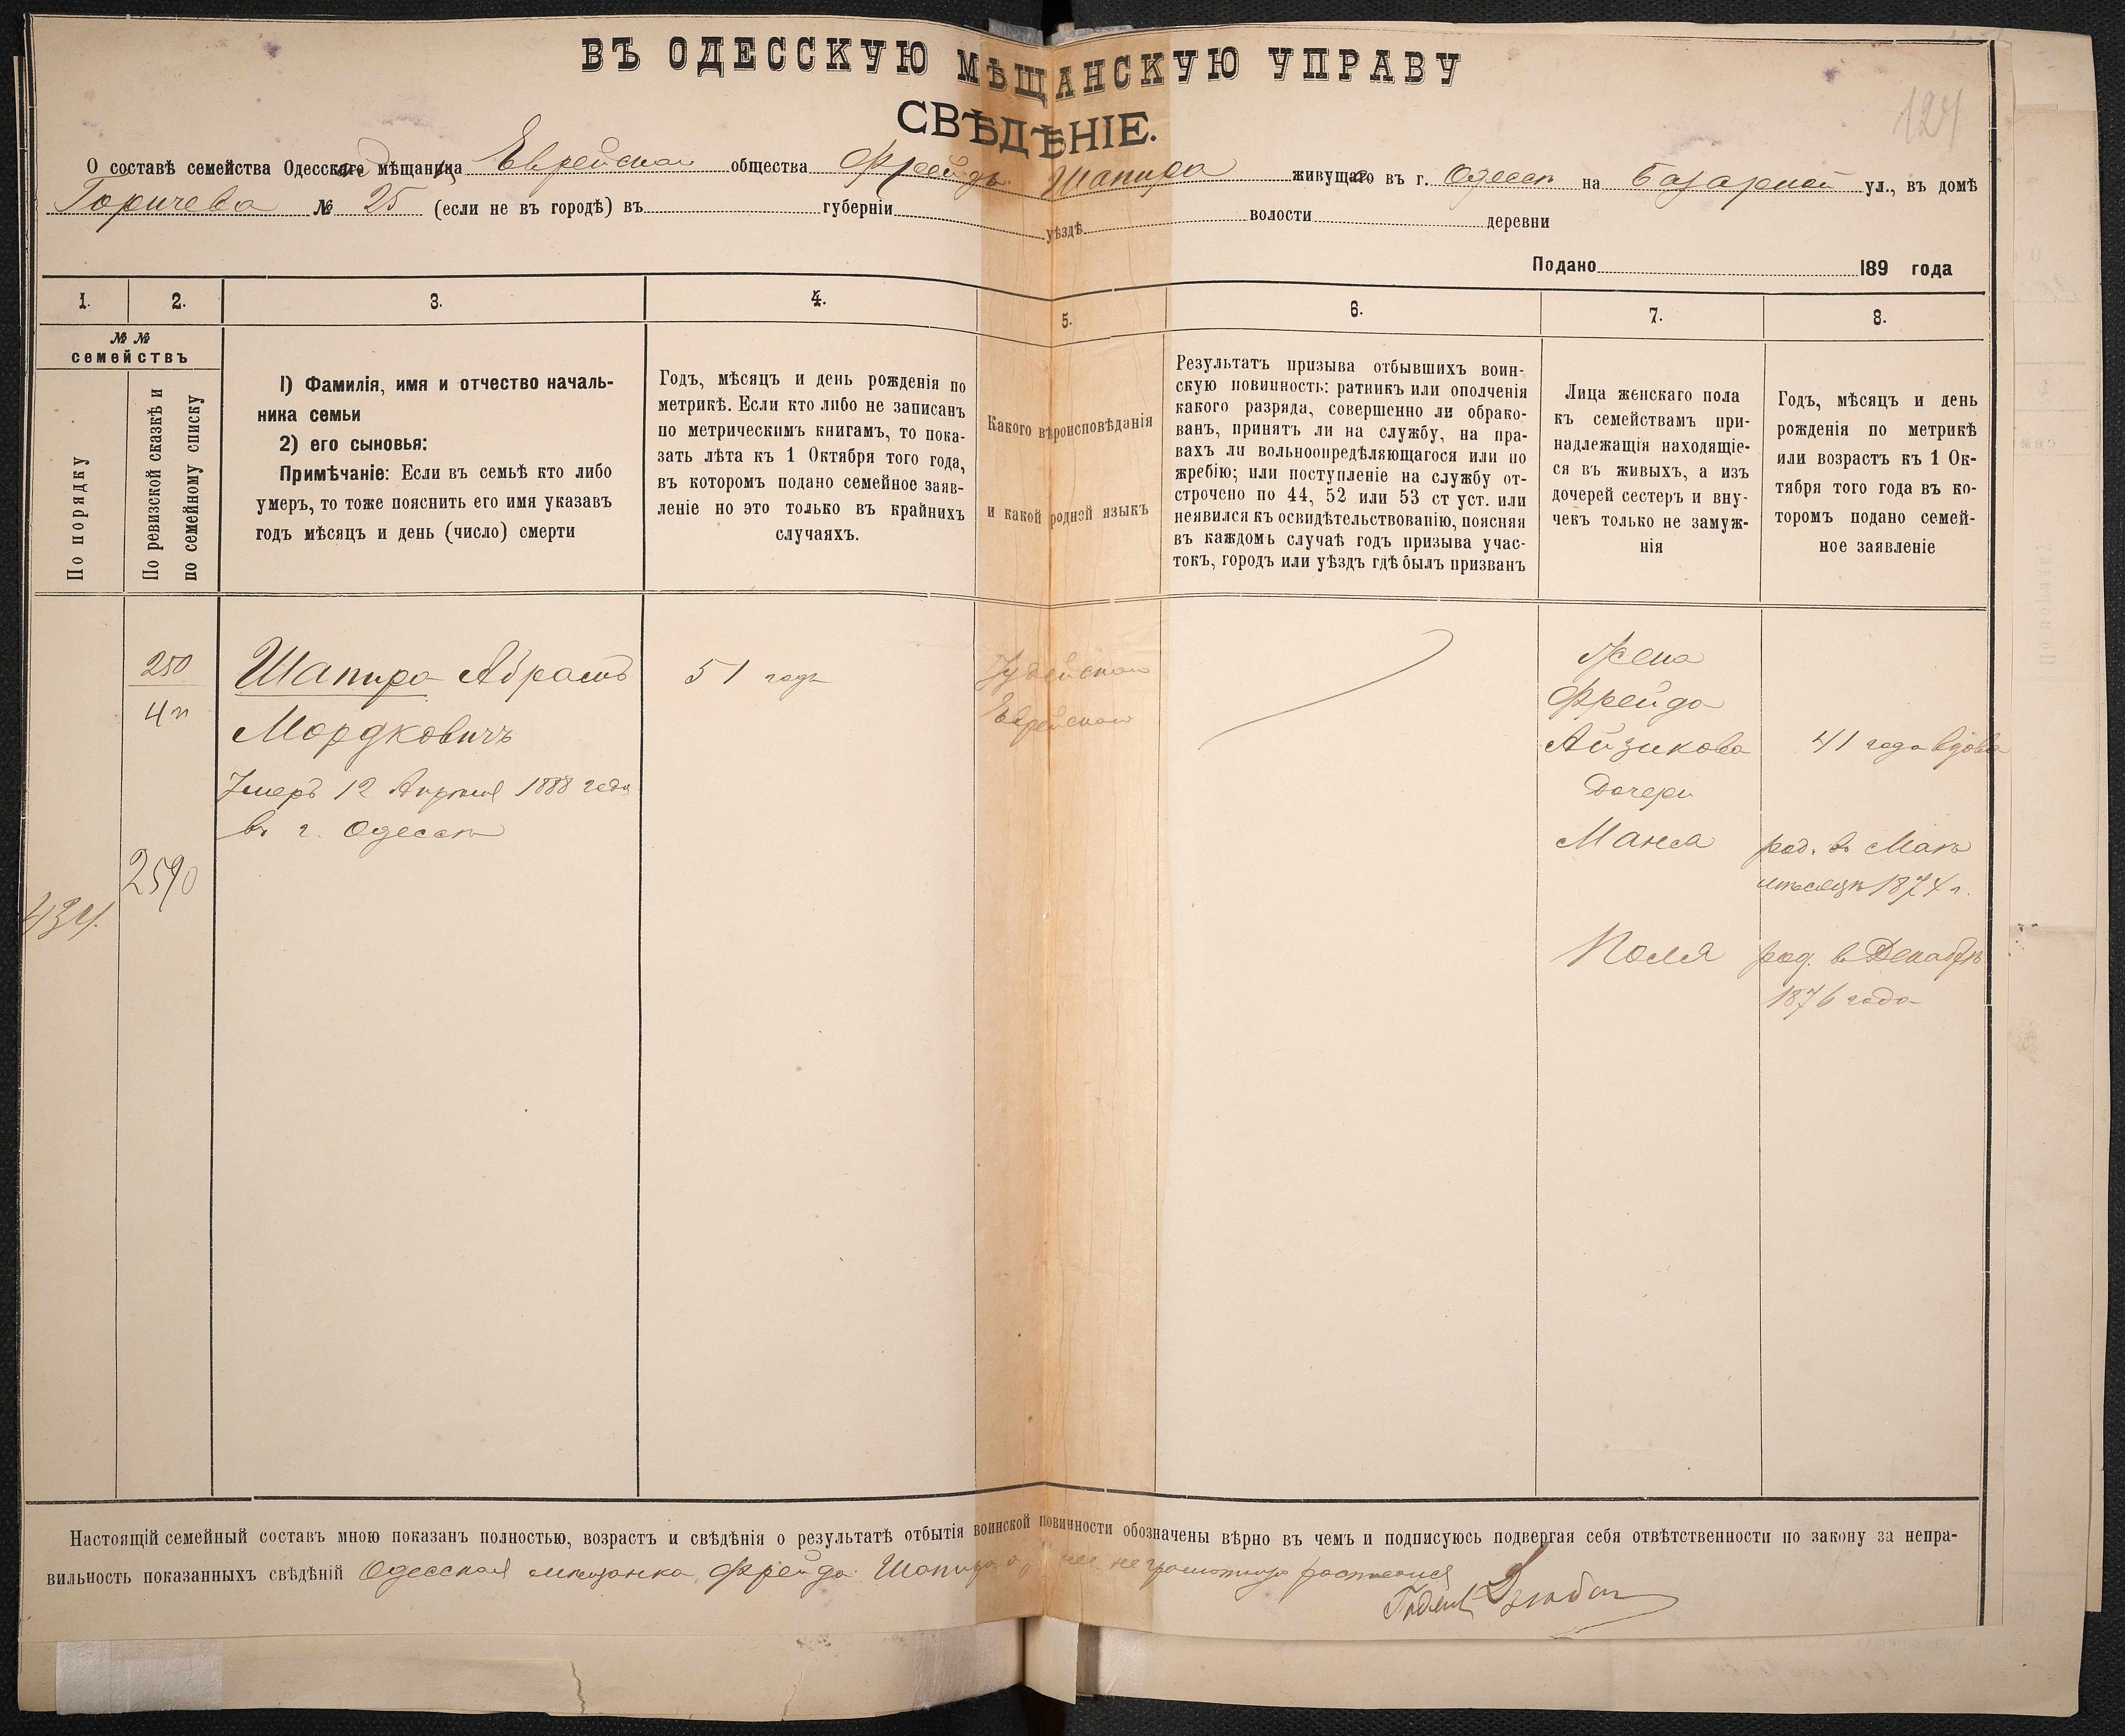 ВЪ ОДЕССКУЮ МѢЩАНСКУЮ УПРАВУ
СВѢДѢНІЕ.
124
О составѣ семейства Одесской мѣщанки Еврейскаго общества Фрейда Шапира живущаго въ г. Одессѣ на Базарной ул., въ домѣ
Горичева № 25 (если не въ городѣ) въ губерніи уѣздѣ волости деревни
Подано 189 года
1. 2. 3. 4. 5. 6. 7. 8.
№ №
семействъ
По порядку
По ревизской сказкѣ и
по семейному списку
1) Фамилія, имя и отчество началь-
ника семьи
2) его сыновья:
Примѣчаніе: Если въ семьѣ кто либо
умеръ, то тоже пояснить его имя указавъ
годъ мѣсяцъ и день (число) смерти
Годъ, мѣсяцъ и день рожденія по
метрикѣ. Если кто либо не записанъ
по метрическимъ книгамъ, то пока-
зать лѣта къ 1 Октября того года,
въ которомъ подано семейное заяв-
леніе но это только въ крайнихъ
случаяхъ.
Какого вѣроисповѣданія
и какой родной языкъ
Результатъ призыва отбывшихъ воин-
скую повинность: ратникъ или ополченія
какого разряда, совершенно ли обрако-
ванъ, принятъ ли на службу, на пра-
вахъ ли вольноопредѣляющагося или по
жребію; или поступленіе на службу от-
строчено по 44, 52 или 53 ст уст. или
неявился къ освидѣтельствованію, поясняя
въ каждомъ случаѣ годъ призыва учас-
токъ, городъ или уѣздъ гдѣ былъ призванъ
Лица женскаго пола
къ семействамъ при-
надлежащія находящіе-
ся въ живыхъ, а изъ
дочерей сестеръ и вну-
чекъ только не замуж-
нія
Годъ, мѣсяцъ и день
рожденія по метрикѣ
или возрастъ къ 1 Ок-
тября того года въ ко-
торомъ подано семей-
ное заявленіе
434.
250
4п
2590
Шапира Абрамъ
Мордковичъ
Умеръ 12 Апрѣля 1888 года
въ г. Одессѣ
51 годъ
Іудейскаго
Еврейскаго
Жена
Фрейда
Айзикова
Дочери
Маня
Поля
41 года вдова
род. въ Маѣ
мѣсяцѣ 1874 г.
род. въ Декабрѣ
1876 года
Настоящій семейный составъ мною показанъ полностью, возрастъ и свѣдѣнія о результатѣ отбытія воинской повинности обозначены вѣрно въ чемъ и подписуюсь подвергая себя отвѣтственности по закону за непра-
вильность показанныхъ свѣдѣній Одесская мѣщанка Фрейда Шапира а за нее неграмотную расписался